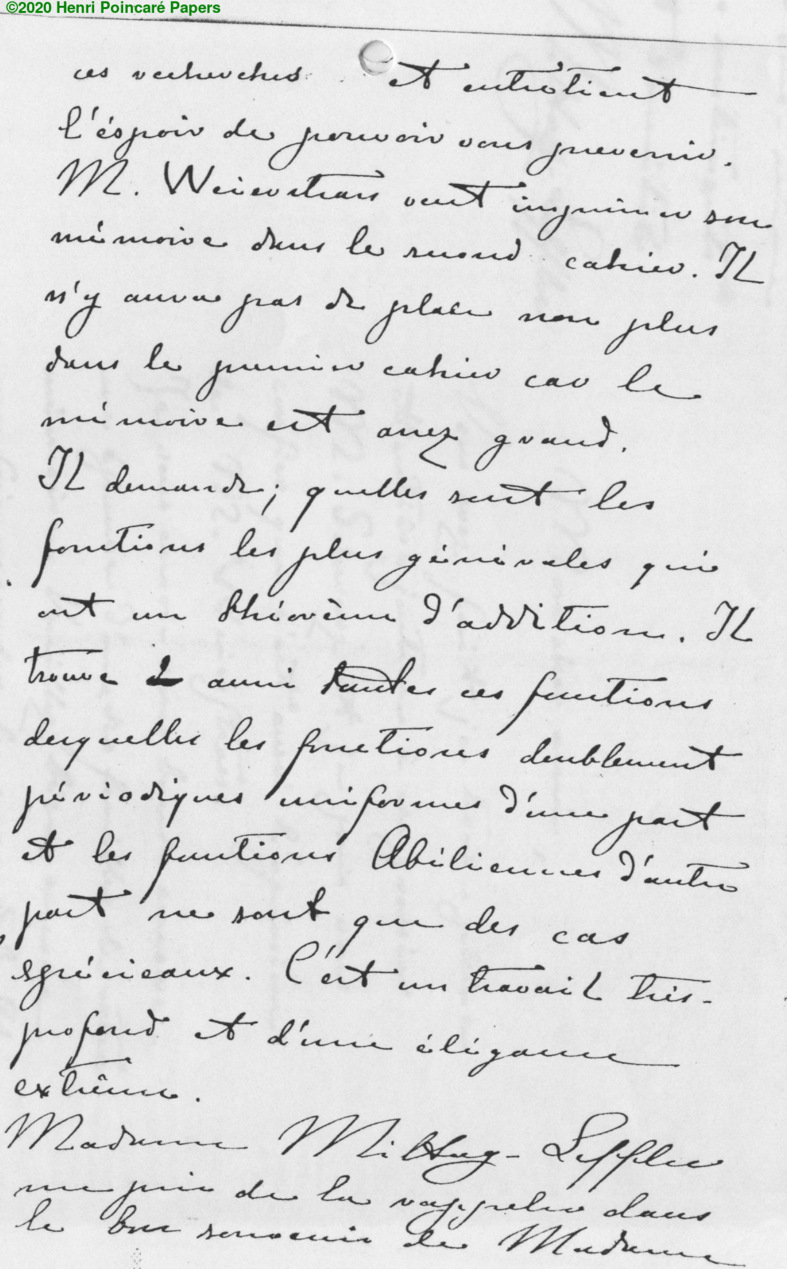 ©2020 Henri Poincaré Papers
ces recherches et entretient
l'éspoir de pouvoir vous prevenir.
M. Weierstrass veut imprimer son
mémoire dans le second cahier. Il
n'y aura pas de place non plus
dans le premier cahier car le
mémoire est assez grand.
Il demande; quelles sont les
fonctions les plus générales qui
ont un théorème d'addition. Il
trouve aussi toutes ces fonctions
desquelles les fonctions doublement
périodiques uniformes d'une part
et les fonctions Abéliennes d'autre
part ne sont que des cas
spécieaux. C'est un travail très-
profond et d'une élégance
extrême.
Madame Mittag-Leffler
me prie de la rappeler dans
le bon souvenir de Madame